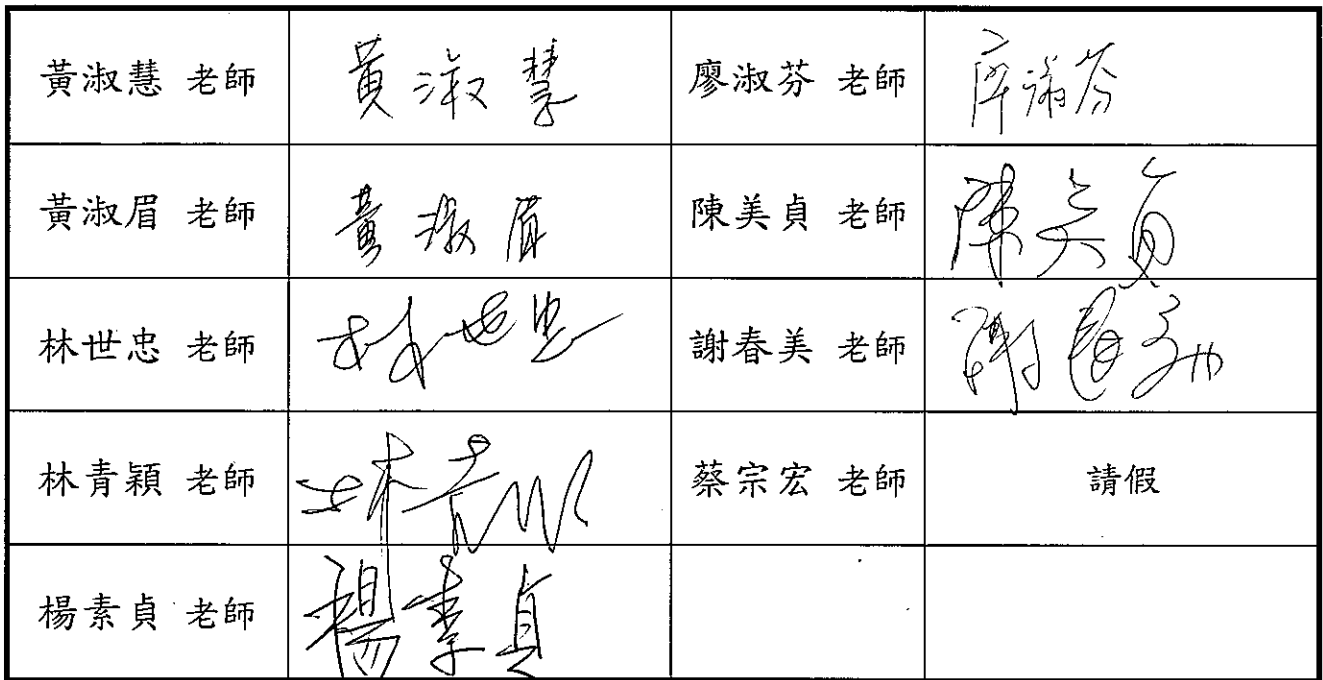 黃淑慧 老師 黃淑慧 廖淑芬 老師 廖淑芬
黃淑眉 老師 黃淑眉 陳美貞 老師 陳美貞
林世忠 老師 林世忠 謝春美 老師 謝春美
林青穎 老師 林青 蔡宗宏 老師 請假
楊素貞 老師 楊素貞